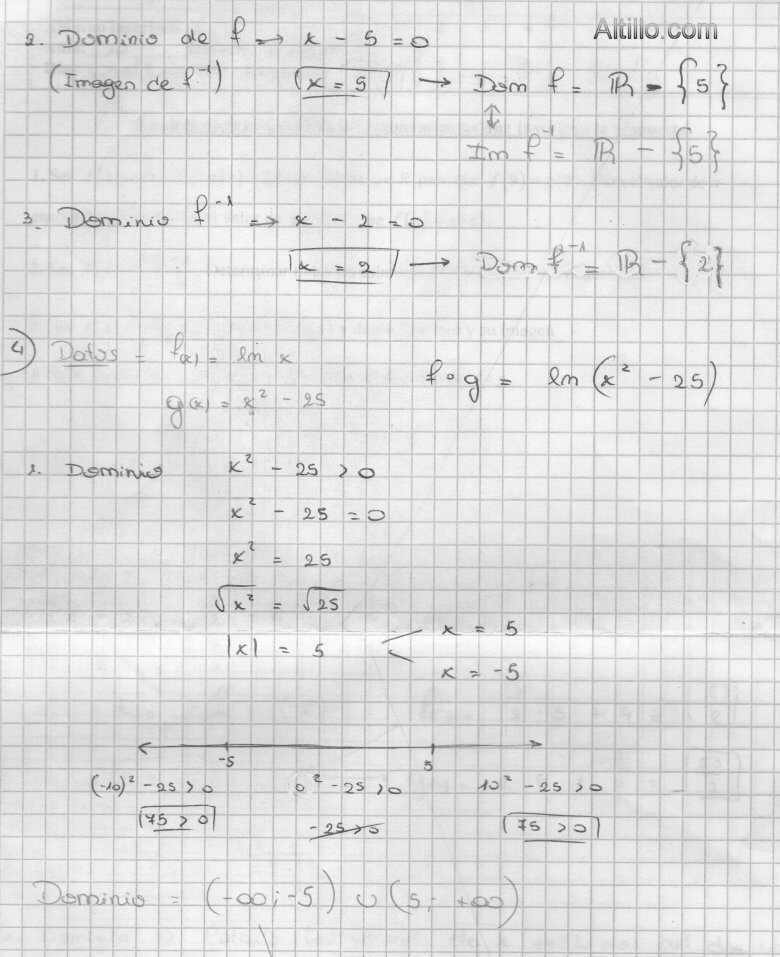 Altillo.com
2. Dominio de f ⇒ x - 5 = 0
(Imagen de f⁻¹) x = 5 → Dom f = ℝ - {5}
↕
Im f⁻¹ = ℝ - {5}
3. Dominio f⁻¹ ⇒ x - 2 = 0
x = 2 → Dom f⁻¹ = ℝ - {2}
4) Datos = f(x) = ln x
f∘g = ln (x² - 25)
g(x) = x² - 25
1. Dominio x² - 25 > 0
x² - 25 = 0
x² = 25
√x² = √25
|x| = 5
x = 5
x = -5
-5 5
(-10)² - 25 > 0 0² - 25 > 0 10² - 25 > 0
75 > 0 -25 > 0 75 > 0
Dominio = (-∞; -5) ∪ (5; +∞)